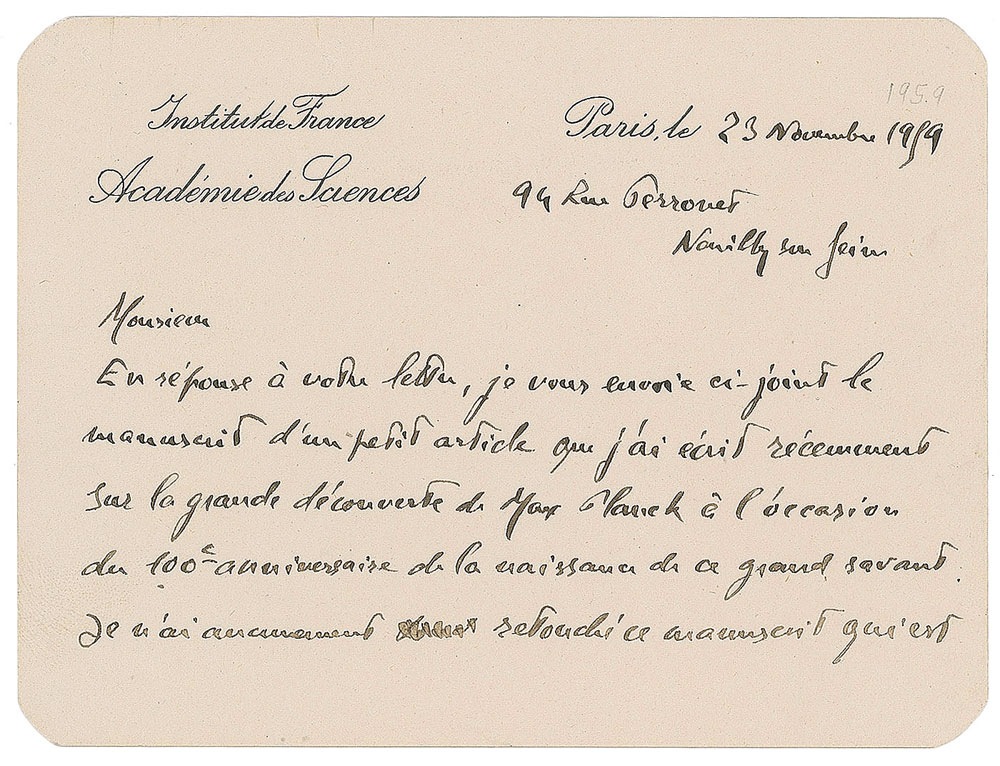 1959
Institut de France
Académie des Sciences
Paris, le 23 Novembre 1959
94 Rue Perronet
Neuilly sur Seine
Monsieur
En réponse à votre lettre, je vous envoie ci-joint le
manuscrit d'un petit article que j'ai écrit récemment
sur la grande découverte de Max Planck à l'occasion
du 100e anniversaire de la naissance de ce grand savant.
Je n'ai aucunement retouché ce manuscrit qui est